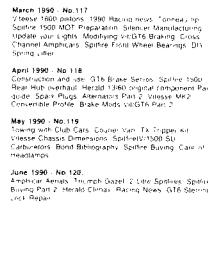 March 1990 - No.117
Vitesse 1600 pistons. 1990 Racing news.
Spitfire 1500 MOT Preparation. Silencer Manufacturing
Update your Lights. Modifying Vit/GT6 Braking. Cross
Channel Amphicars. Spitfire Front Wheel Bearings. DIY
Spring Lifter
April 1990 - No 118
Construction and use. GT6 Brake Servos. Spitfire 1500
Rear Hub overhaul. Herald 13/60 original component Parts
guide. Spark Plugs. Alternators Part 2. Vitesse MK2
Convertible Profile. Brake Mods vit/GT6 Part 2
May 1990 - No.119
Towing with Club Cars. Courier Van.
Vitesse Chassis Dimensions. Spitfire 1500 SU
Carburettors. Bond Bibliography. Spitfire Buying. Care of
Headlamps.
June 1990 - No 120.
Amphicar Aerials. Triumph Gazel. 2 Litre Spitfires. Spitfire
Buying Part 2. Herald Climax. Racing News. GT6 Steering
Lock Repair